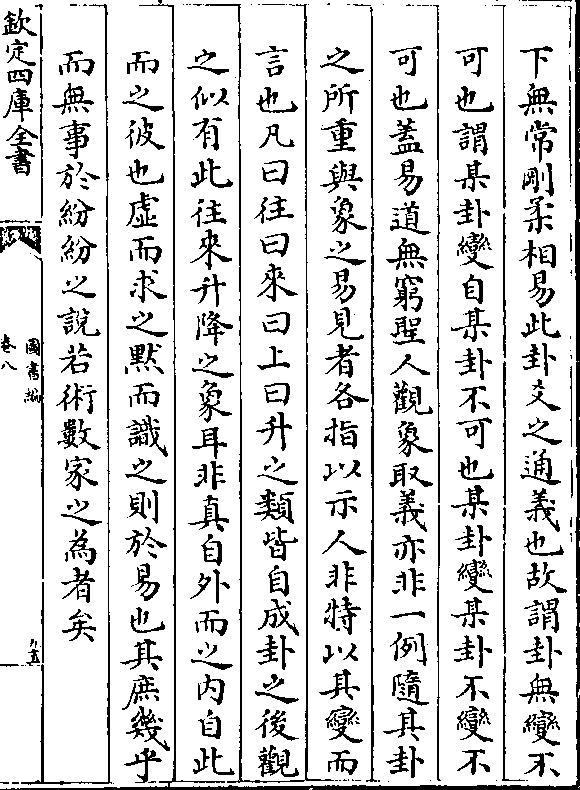 下無常剛柔相易此卦爻之通義也故謂卦無變不
可也謂某卦變自某卦不可也某卦變某卦不變不
可也蓋易道無窮聖人觀象取義亦非一例隨其卦
之所重與象之易見者各指以示人非特以其變而
言也凡曰往曰來曰上曰升之類皆自成卦之後觀
之似有此往來升降之象耳非真自外而之内自此
而之彼也虛而求之黙而識之則於易也其庶幾乎
而無事於紛紛之說若術數家之為者矣
欽定四庫全書
圖書編
卷八